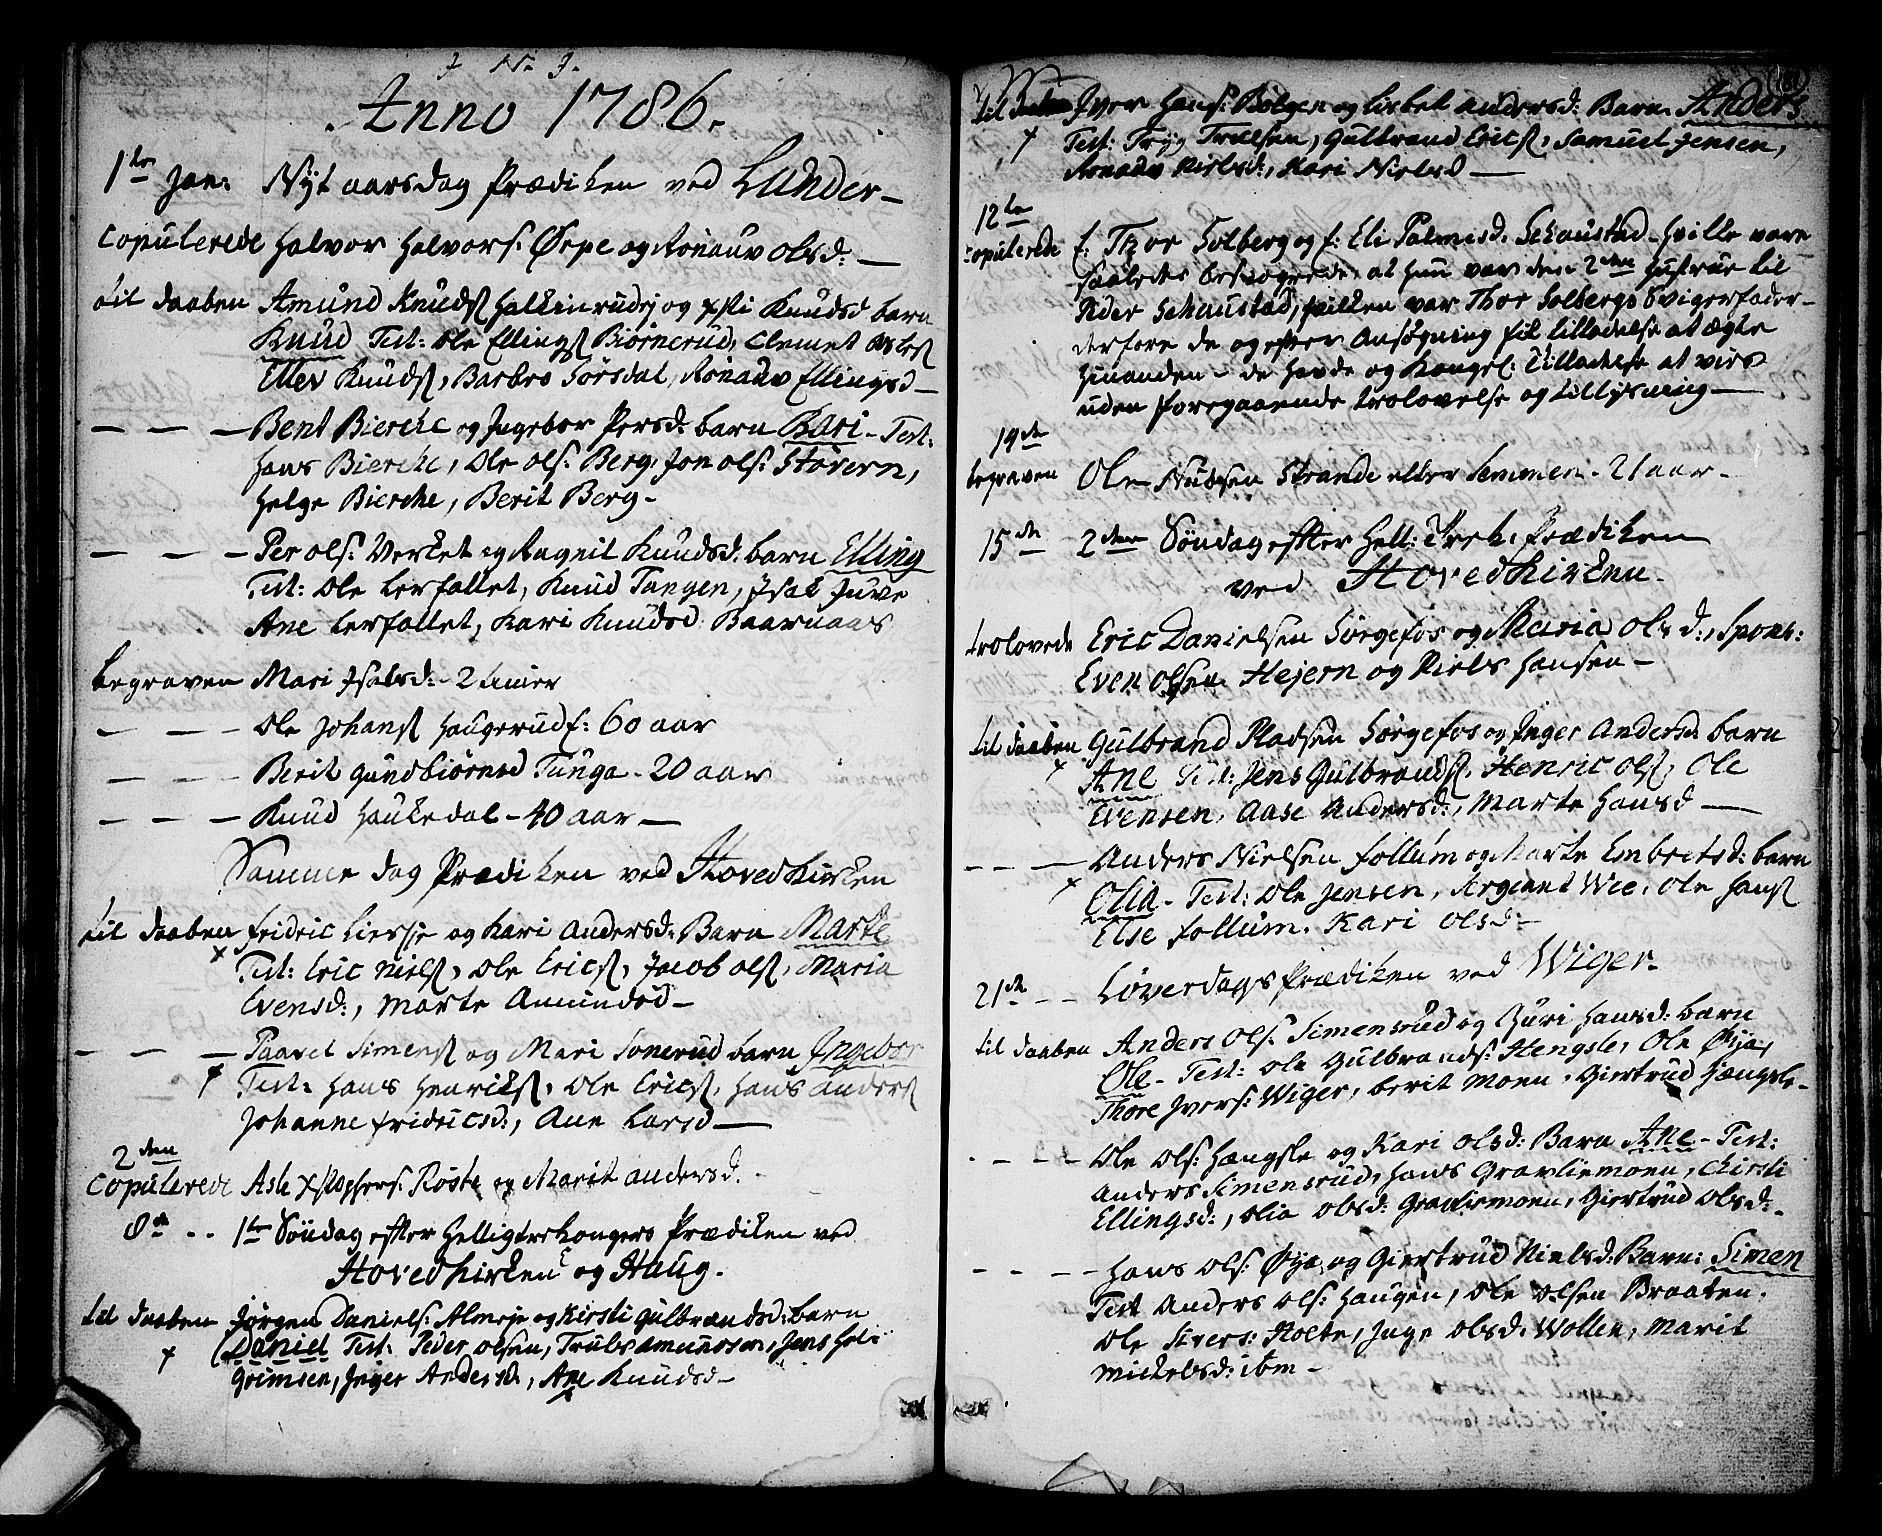 J. N. J.
Anno 1786.
1te Jan: Nytaarsdag Prædiken ved Lunder-
Copulerede Halvor Halvors: Ørpe og Rønauv Olsd: —
til daaben Amund Knuds Halkinrudej og xsti Knudsd barn
Knud Test: Ole Ellings Biørnerud, Clemet
Ellev Knuds, Barbro Sørsdal, Rønauv Ellingsd —
— — — Bent Bierche og Ingebor Persd: barn Kari - Test:
Hans Bierche, Ole Ols: Berg, Jon Ols: Støvern,
Helge Bierche, Berit Berg-
— — — Per Ols: Verket og Ragnil Knudsd: barn Elling
Test: Ole Lerfallet, Knud Tangen, Isak Juve
Ane Lerfallet, Kari Knudsd Baarnaas
begraven Mari Isaksd: - 2 timer
— — — Ole Johans Haugerud f: 60 aar
— — — Berit Gundbiørnsd Tunga - 20 aar
— — — Knud Haukedal - 40 aar —
Samme dag Prædiken ved Hovedkirken
til daaben Fridric Lierse og Kari Andersd: Barn Marte
x Test: Eric Niels, Ole Erics, Jacob Ols, Maria
Evensd:, Marte Amundsd —
— — — Paavel Simens og Mari Sonerud barn Ingebor
x Test: Hans Henriks, Ole Erics, Hans Anders
Johanne Fridricsd:, Ane Larsd —
2den
Copulerede Asle Xstophers: Roste og Marit Andersd.
8de - - 1te Søndag efter Helligtrekongers Prædiken ved
Hovedkirken og Haug.
til daaben Jørgen Daniels: Almeje og Kirsti Gulbrandsd: barn
x Daniel Test: Peder Olsen, Truls Amundsen, Jens Hel-
Grimsen, Inger Andersd, Ane Knudsd —
til daaben Iver Hans: Bolgen og Lisbet Andersd: Barn Anders
x Test: Tryg Truelsen, Gulbrand Erics, Samuel Jensen,
Rønauv Nielsd:, Kari Nielsd —
12te
Copulerede f. Thor Solberg og f: Eli Palmesd. Schaustad - hville vare
saaledes besvogrede, at hun var den 2den Hustrue til
Peder Schaustad, hvilken var Thor Solbergs Svigerfader -
derfore de og efter Ansøgning til tilladelse at ægte
hinanden - de havde og Kongel: Tilladelse at vies
uden foregaaende trolovelse og tillysning —
14de
begraven Ole Nubsen Strande eller Semmen - 21 aar -
15de 2den Søndag efter Hell: Trek: Prædiken
ved Hovedkirken.
trolovede Eric Danielsen Sørgefos og Maria Olsd:, Spons:
Even Olsen Hejern og Niels Hansen —
til daaben Gulbrand Pladsen Sørgefos og Inger Andersd barn
x Ane Test: Jens Gulbrands, Henric Ols, Ole
Evensen, Aase Andersd:, Marte Hansd —
— — — Anders Nielsen Follum og Marte Embretsd: barn
x Olia - Test: Ole Jensen, Sergeant Wee, Ole Hans
Else Follum. Kari Olsd: —
21de - - Løverdags Prædiken ved Wiger.
til daaben Anders Ols: Simensrud og Guri Hansd: barn
Ole - Test: Ole Gulbrands: Hengsle, Ole Øya,
Thore Ivers: Wiger, berit Moen, Giertrud Hængsle-
- — — Ole Ols: Hængsle og Kari Olsd: Barn Ane - Test:
Anders Simensrud, Hans Gravliemoen, Kirsti
Ellingsd:, Olia Olsd: Gravliemoen, Giertrud Olsd: -
- - - - Hans Ols: Øya, og Giertrud Nielsd: Barn: Simen
Test Anders Ols: Haugen, Ole Olsen Braaten.
Ole Ivers: Holte, Inge Olsd: Wollen, Marit
Mickelsd: ibm -